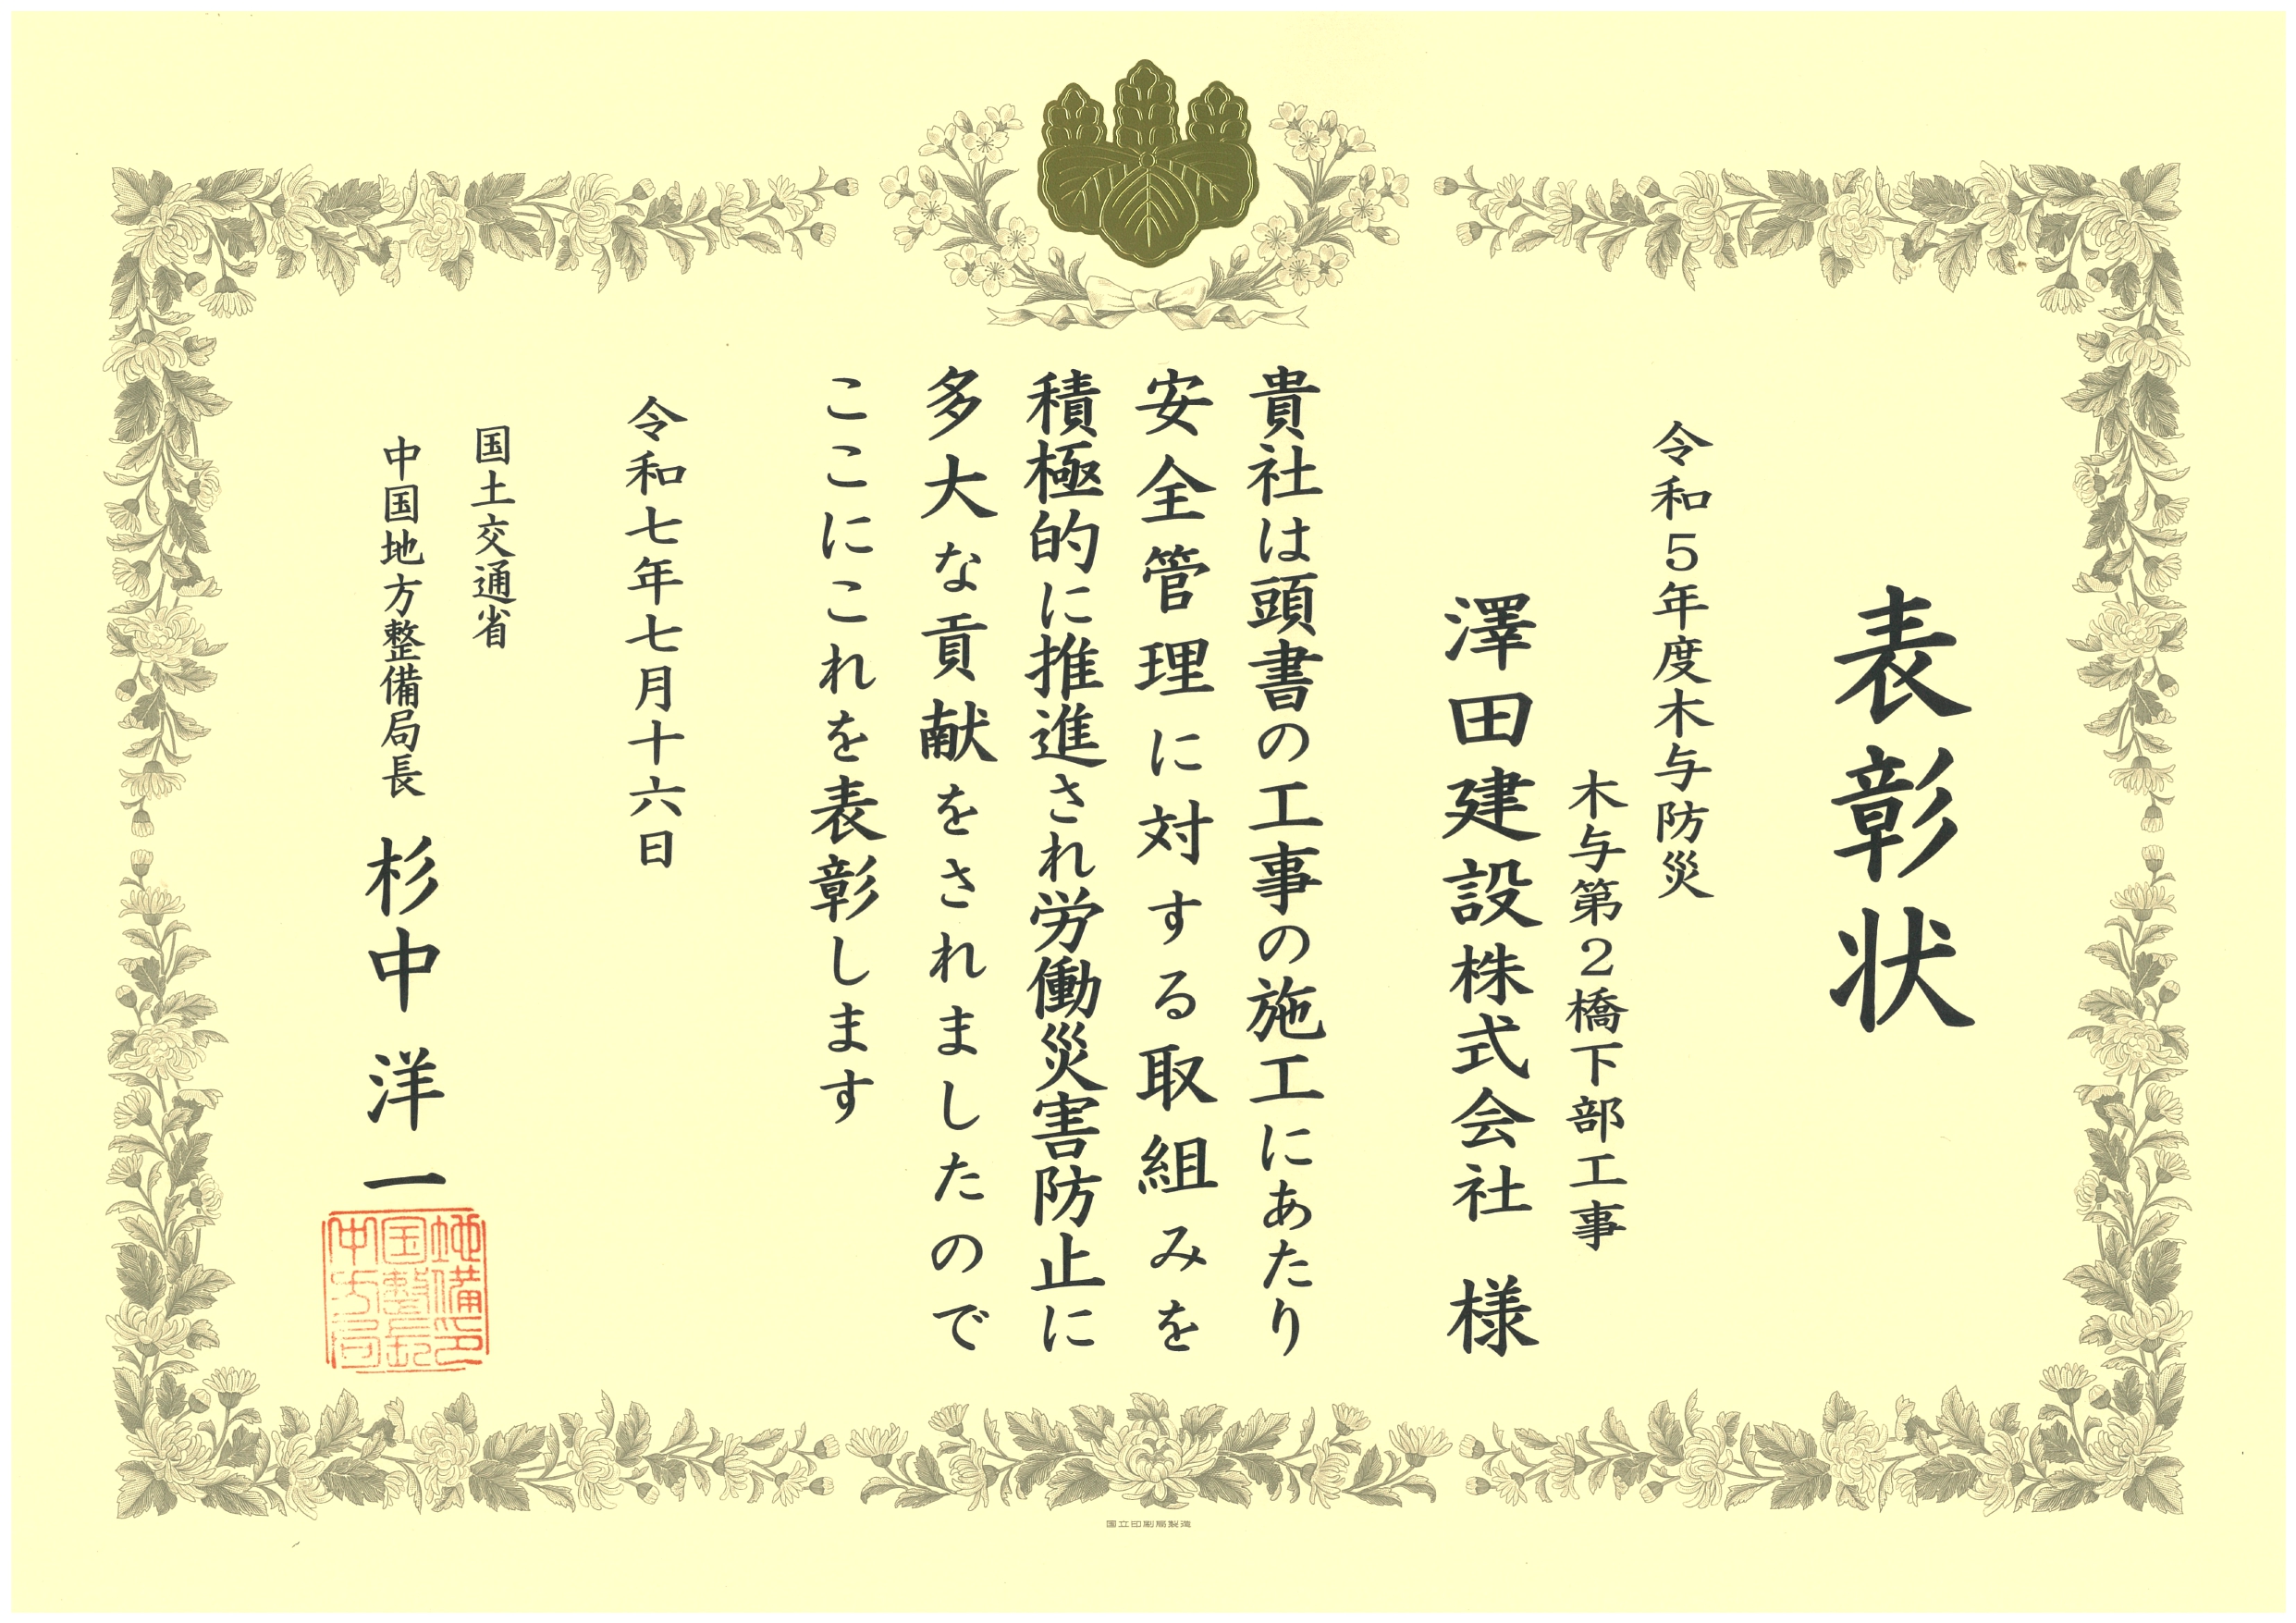 表彰状
令和5年度木与防災
木与第2橋下部工事
澤田建設株式会社 様
貴社は頭書の工事の施工にあたり
安全管理に対する取組みを
積極的に推進され労働災害防止に
多大な貢献をされましたので
ここにこれを表彰します
令和七年七月十六日
国土交通省
中国地方整備局長 杉中洋一
中国地
方整備
局長印
国立印刷局製造